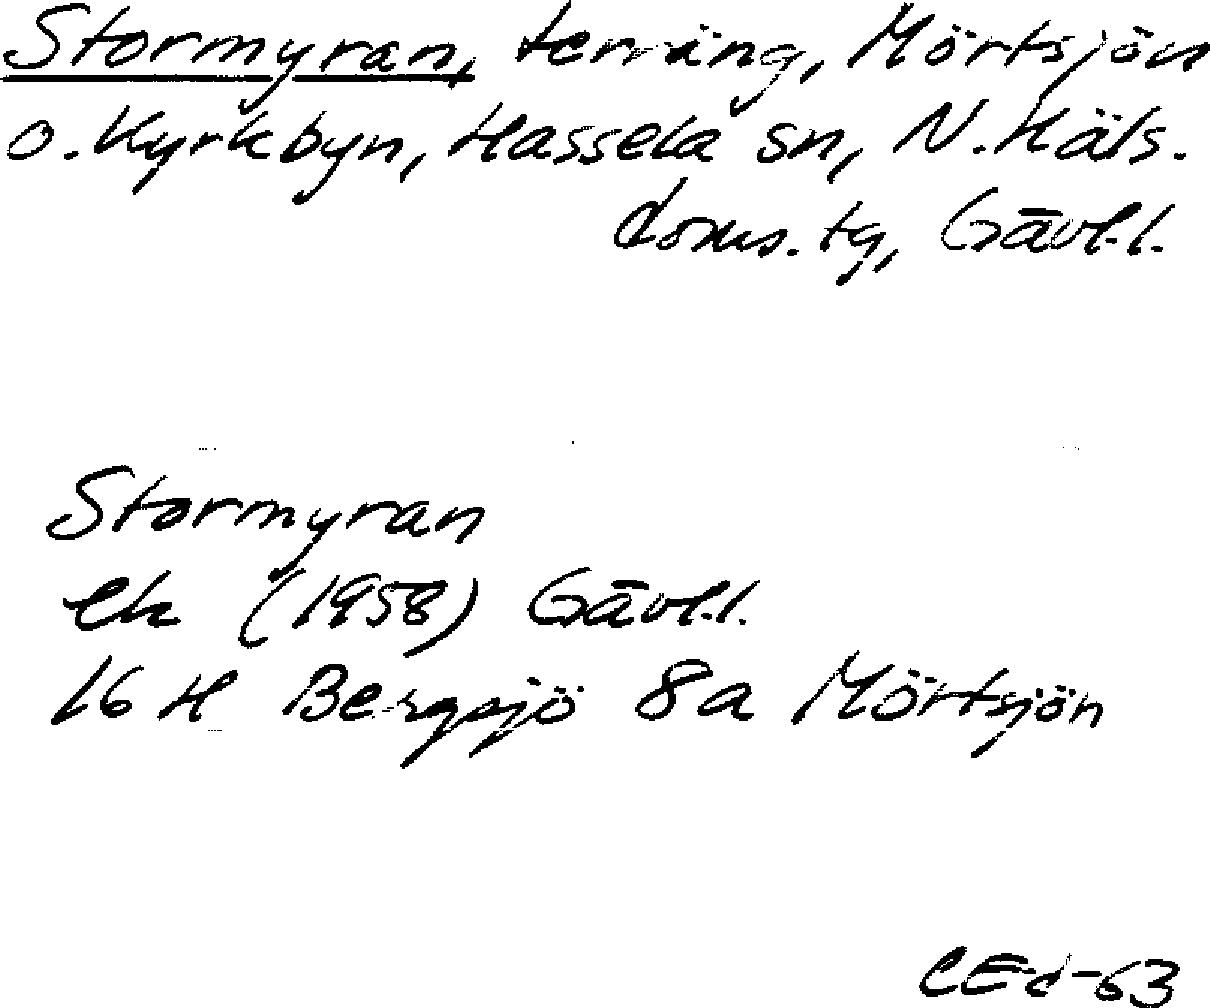 Stormyran, terräng, Mörtsjön
o. Kyrkbyn, Hassela sn, N. Häls.
doms. tg, Gävl.l.
Stormyran
ek (1958) Gävl.l.
16 H Bergsjö 8a Mörtsjön
CEd-63